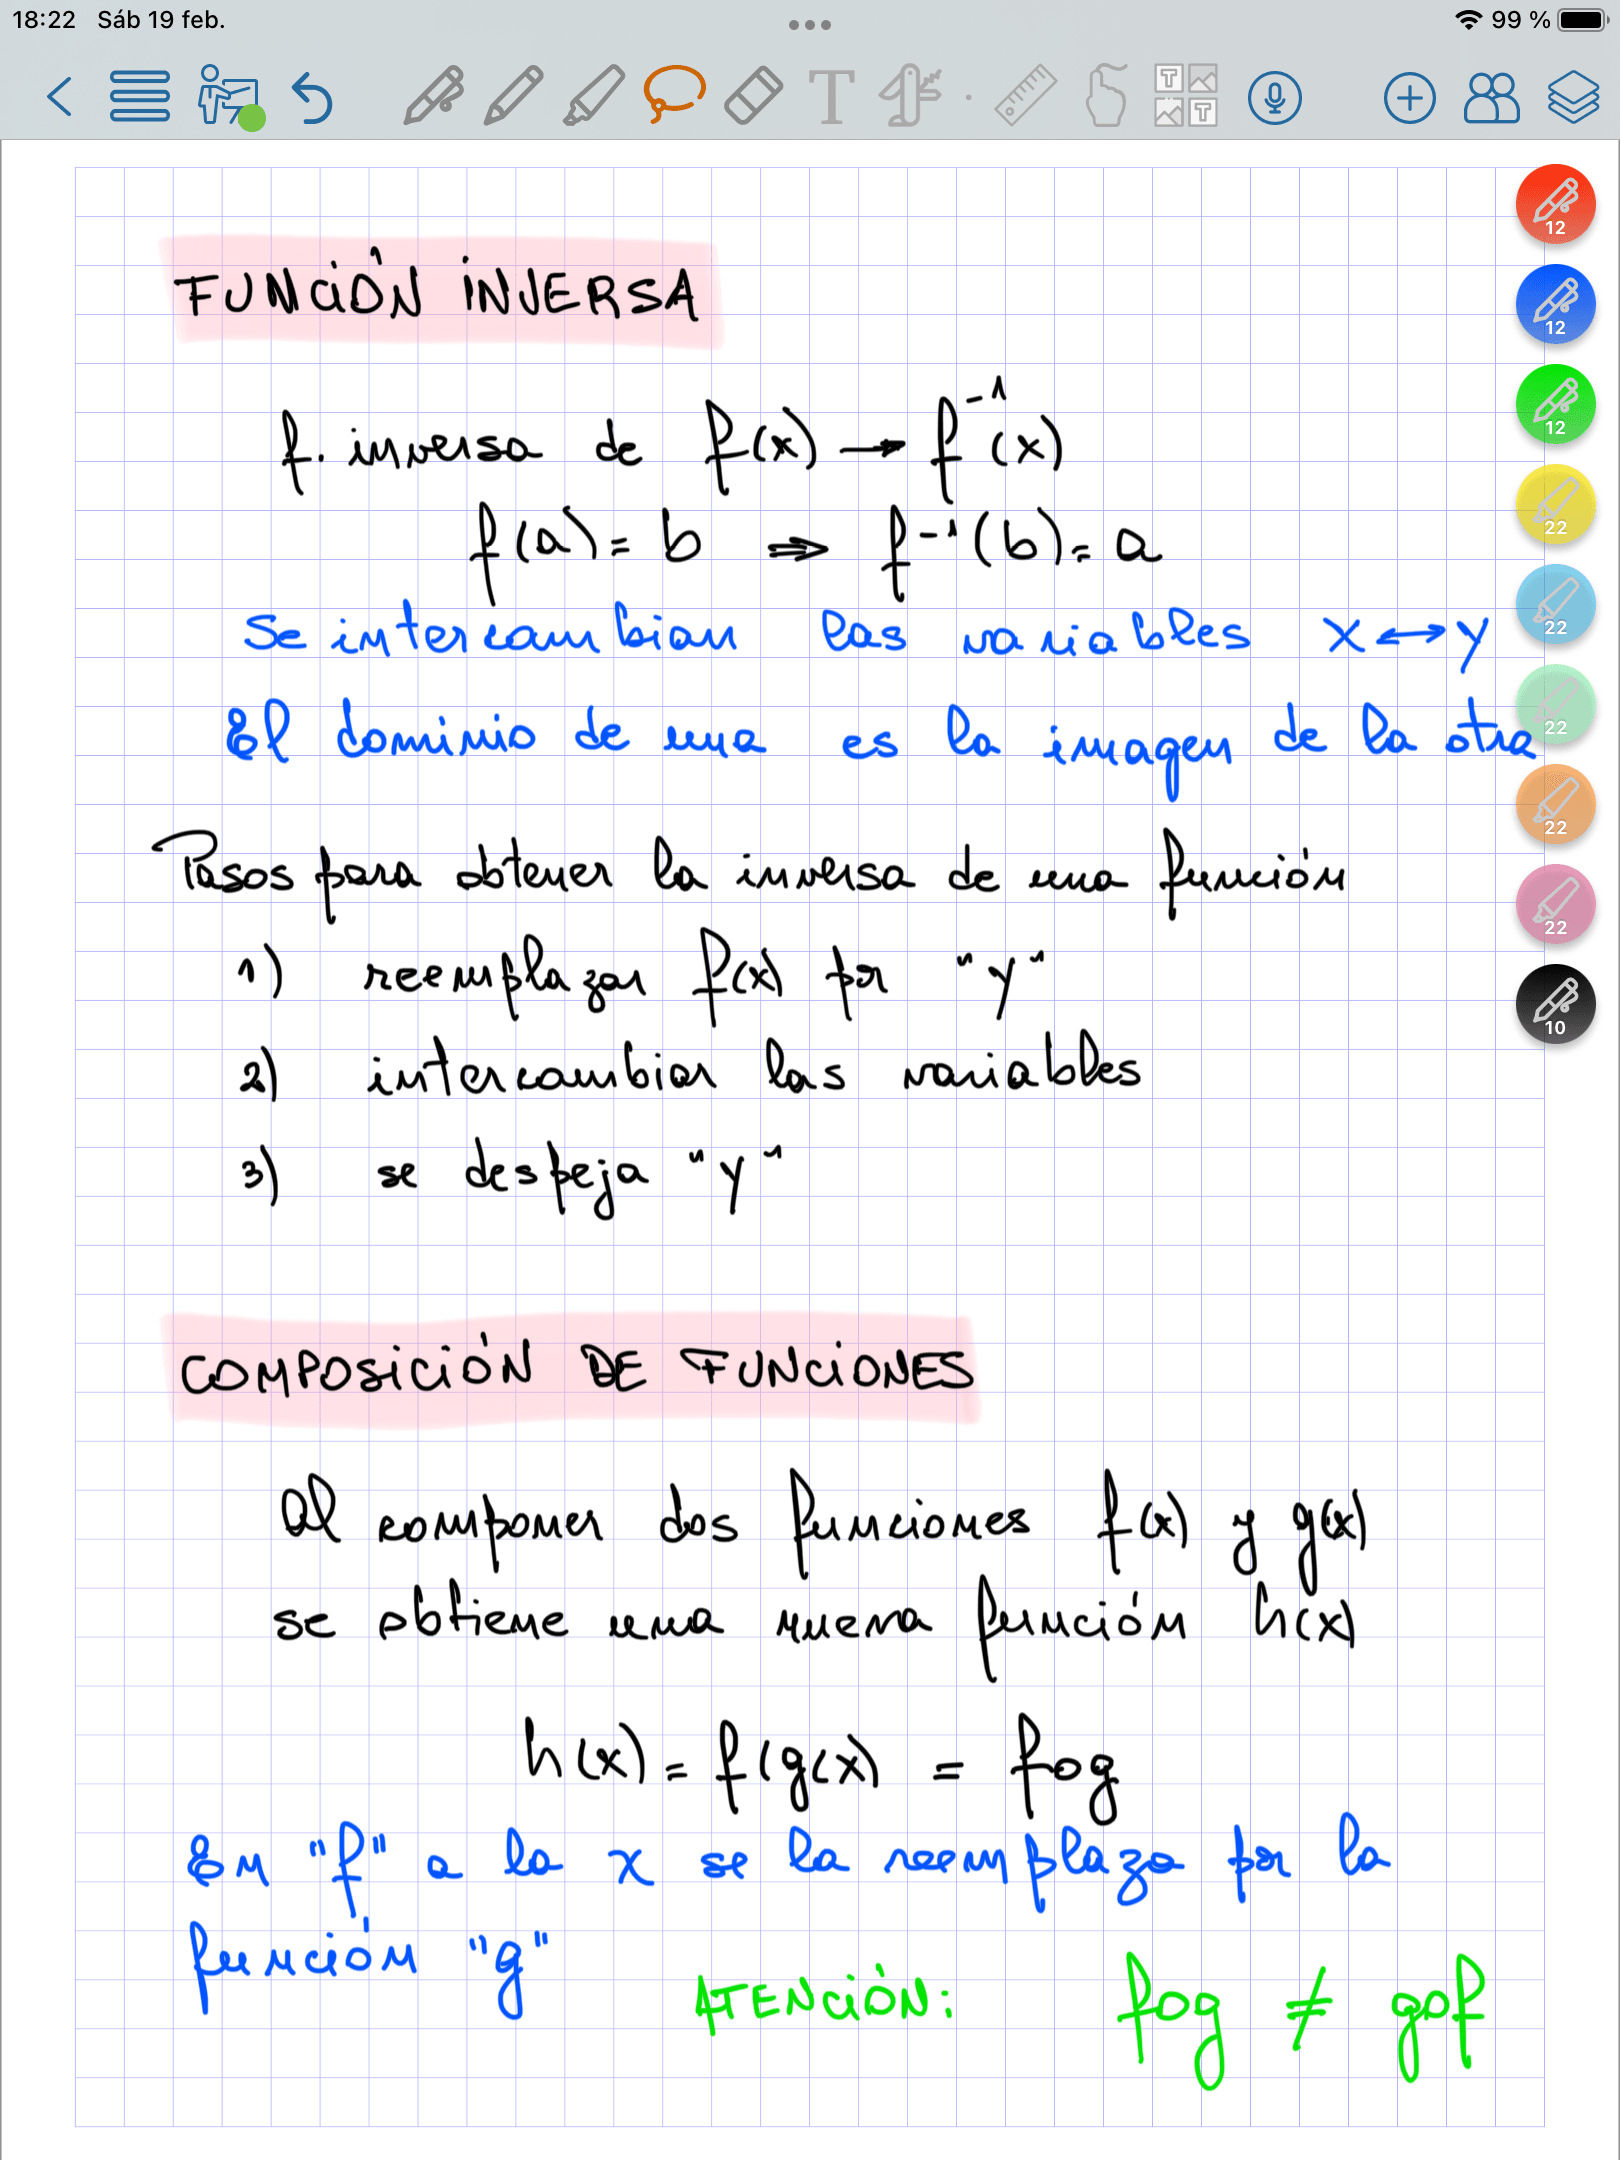 18:22 Sáb 19 feb.
99 %
T
T
T
12
12
12
22
22
22
22
22
10
FUNCIÓN INVERSA
f. inversa de f(x) → f⁻¹(x)
f(a) = b ⇒ f⁻¹(b) = a
Se intercambian las variables x ↔ y
El dominio de una es la imagen de la otra
Pasos para obtener la inversa de una función
1) reemplazar f(x) por "y"
2) intercambiar las variables
3) se despeja "y"
COMPOSICIÓN DE FUNCIONES
Al componer dos funciones f(x) y g(x)
se obtiene una nueva función h(x)
h(x) = f(g(x) = fog
En "f" a la x se la reemplaza por la
función "g"
ATENCIÓN: fog ≠ gof